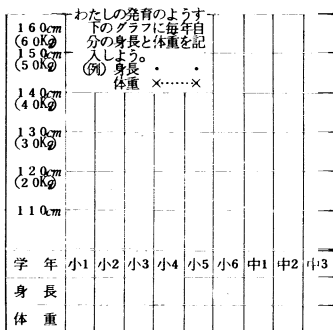 わたしの発育のようす
下のグラフに毎年自
分の身長と体重を記
入しよう。
(例) 身長 ・ ・
体重 ×……×
160cm
(60Kg)
150cm
(50Kg)
140cm
(40Kg)
130cm
(30Kg)
120cm
(20Kg)
110cm
学年 小1 小2 小3 小4 小5 小6 中1 中2 中3
身長
体重